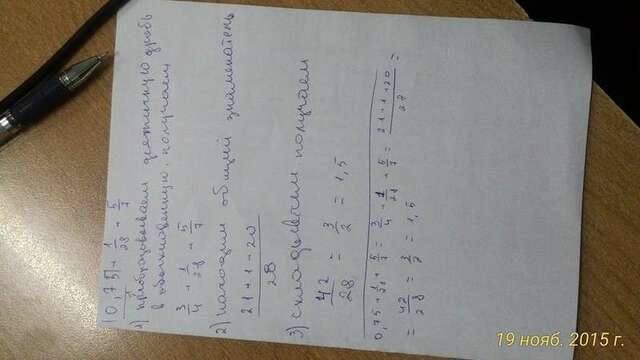 0,75 + 1/28 + 5/7
1) преобразовываем десятичную дробь
в обыкновенную, получаем
3/4 + 1/28 + 5/7
2) находим общий знаменатель
21+1+20/28
3) складываем получаем
42/28 = 3/2 = 1,5
0,75 + 1/28 + 5/7 = 3/4 + 1/28 + 5/7 = 21+1+20/28 =
= 42/28 = 3/2 = 1,5
19 нояб. 2015 г.